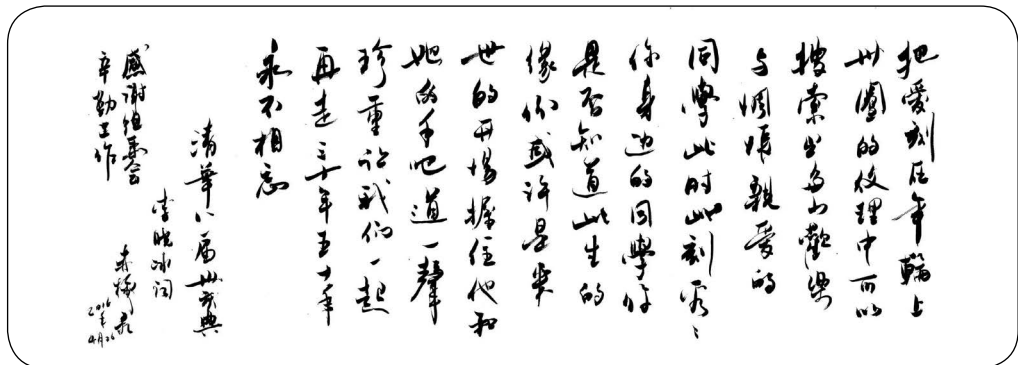 把愛刻在年輪上
卅圈的紋理中可以
搜索出多少歡樂
与惆悵親愛的
同學此时此刻看〻
你身边的同學你
是否知道此生的
缘份或许是来
世的开場握住他和
她的手吧道一聲
珍重让我们一起
再走三十年五十年
永不相忘
清華八届卅庆典
李晓冰词
录
2016年
4月26
感谢组委会
辛勤工作